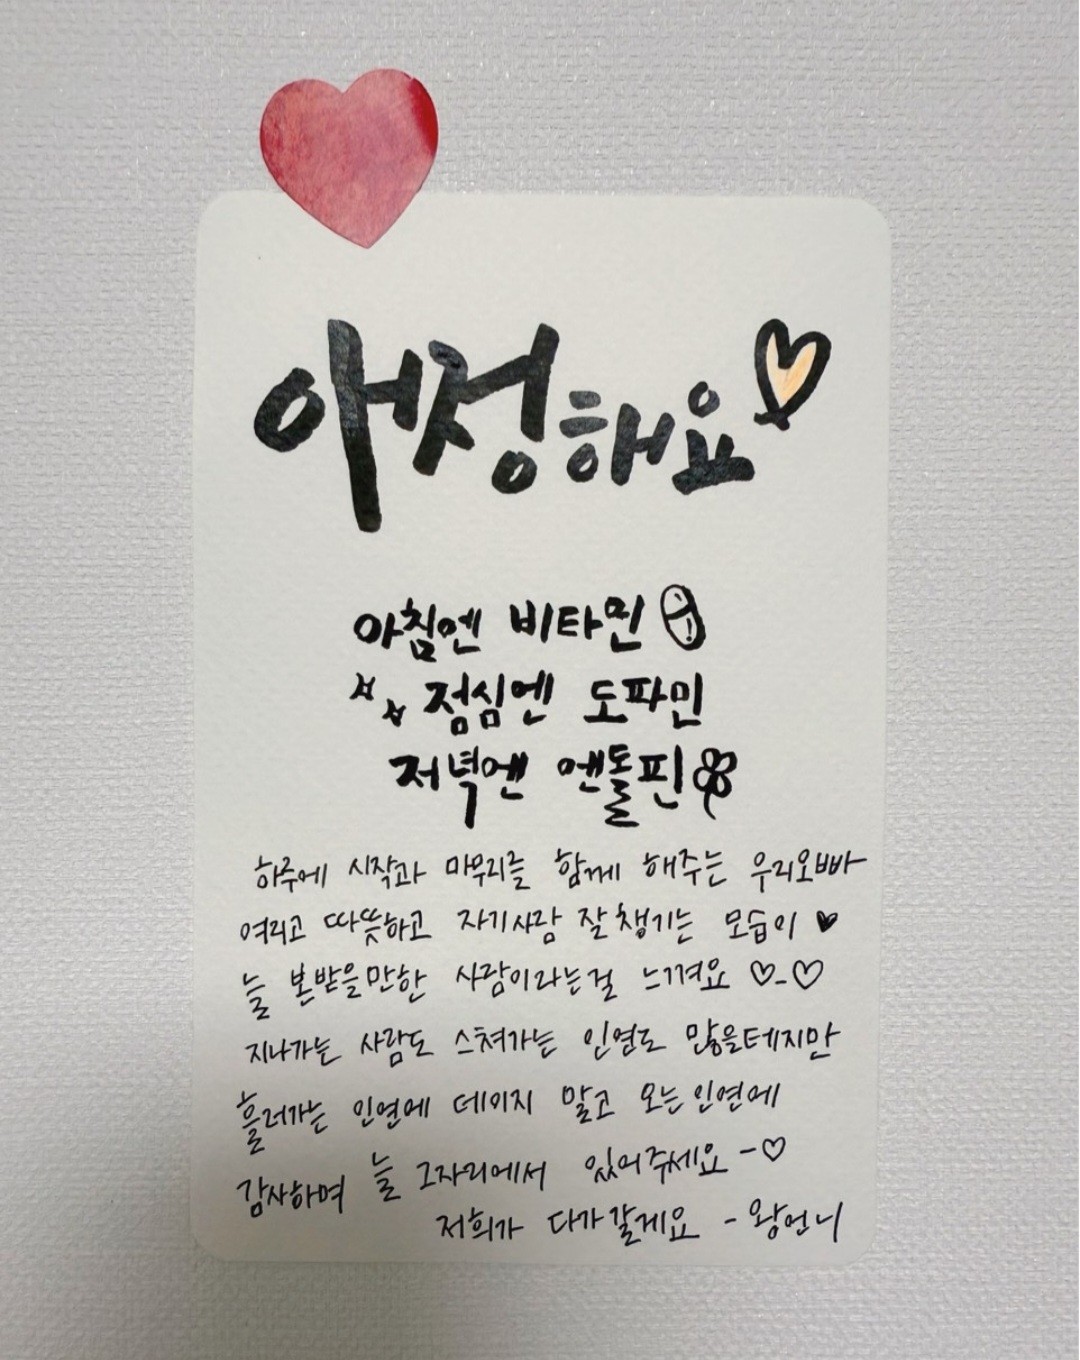 애정해요
아침엔 비타민
점심엔 도파민
저녁엔 엔돌핀
하루에 시작과 마무리를 함께 해주는 우리오빠
여리고 따뜻하고 자기사람 잘 챙기는 모습이 ♥
늘 본받을만한 사람이라는걸 느껴요 ♡-♡
지나가는 사람도 스쳐가는 인연도 많을테지만
흘러가는 인연에 데이지 말고 오는 인연에
감사하며 늘 그자리에서 있어주세요 -♡
저희가 다가갈게요 - 왕언니